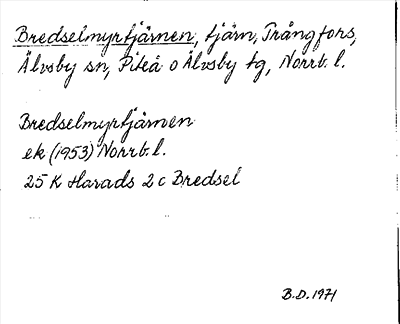 Bredselmyrtjärnen, tjärn, Trångfors,
Älvsby sn, Piteå o Älvsby tg, Norrb. l.
Bredselmyrtjärnen
ek (1953) Norrb. l.
25 K Harads 2 c Bredsel
B.D. 1971